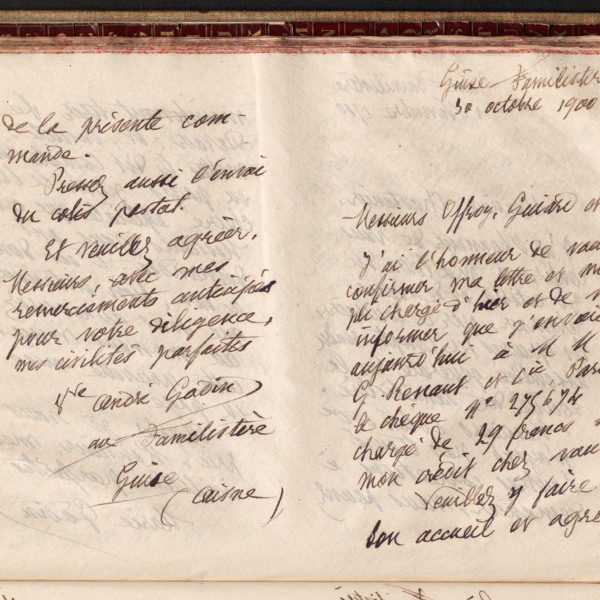 de la présente com
mande.
Pressez aussi l'envoi
du colis postal.
Et veuillez agréer,
Messieurs, avec mes
remerciements anticipés
pour votre diligence,
mes civilités parfaites
Vve André Godin
au Familistère
Guise
(Aisne)
Guise Familistère
30 octobre 1900
Messieurs Offroy, Guiard et
J'ai l'honneur de vous
confirmer ma lettre et mon
pli chargé d'hier et de v
informer que j'envoie
aujourd'hui à M M
G. Renaut et Cie, Paris
le chèque N° 275674
chargé de 29 francs
mon crédit chez vous
Veuillez y faire
bon accueil et agré